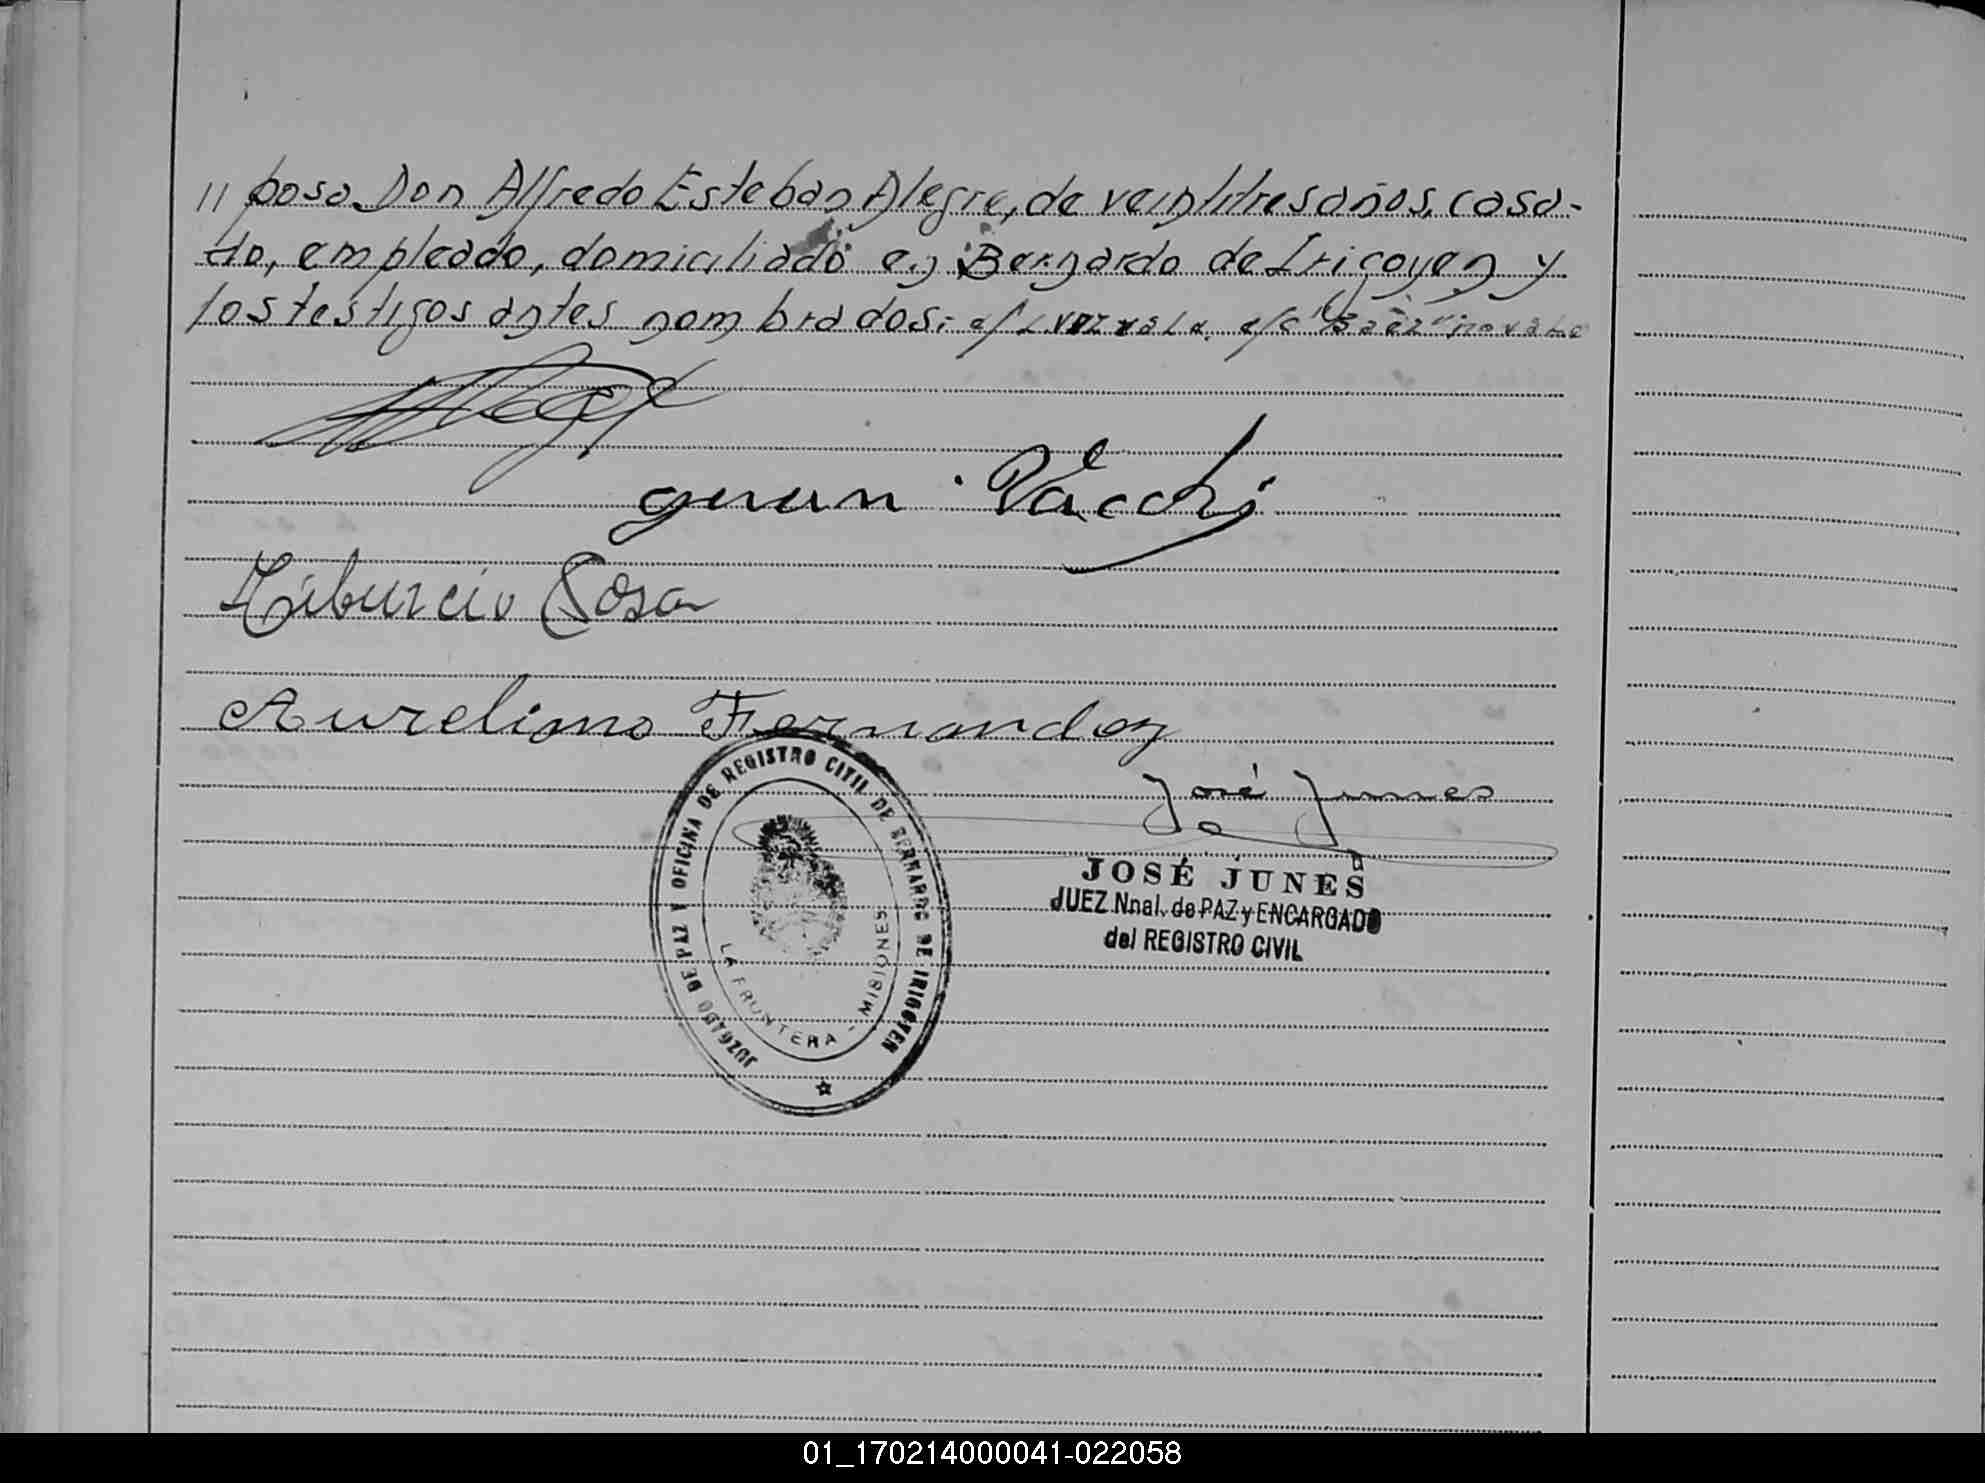 11 posa Don Alfredo Esteban Alegre, de veintitres años, casa-
do, empleado, domiciliado en Bernardo de Irigoyen y
los testigos antes nombrados: "Báez" no vale
Vacchi
Tiburcio Rosa
Aureliano Fernandez
José Junes
JUZGADO DE PAZ Y OFICINA DE REGISTRO CIVIL DE BERNARDO DE IRIGOYEN
LA FRONTERA - MISIONES
JOSÉ JUNES
JUEZ Nnal. de PAZ y ENCARGADO
del REGISTRO CIVIL
01_170214000041-022058